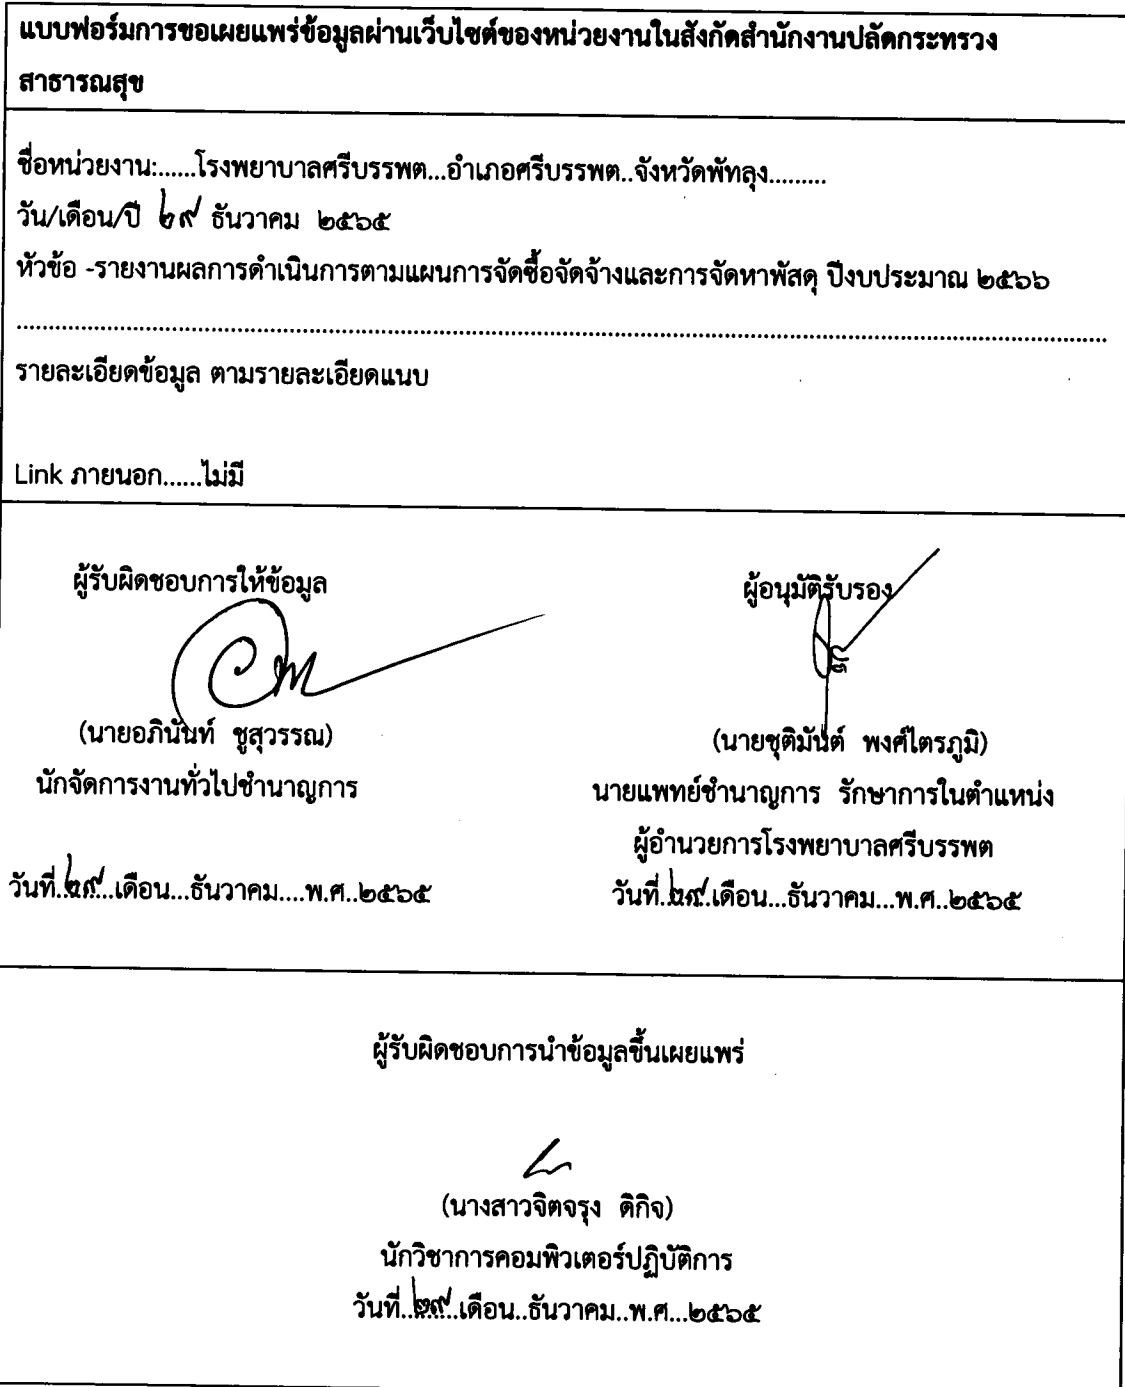 แบบฟอร์มการขอเผยแพร่ข้อมูลผ่านเว็บไซต์ของหน่วยงานในสังกัดสำนักงานปลัดกระทรวง
สาธารณสุข
ชื่อหน่วยงาน:......โรงพยาบาลศรีบรรพต...อำเภอศรีบรรพต..จังหวัดพัทลุง.........
วัน/เดือน/ปี ๒๙ ธันวาคม ๒๕๖๕
หัวข้อ -รายงานผลการดำเนินการตามแผนการจัดซื้อจัดจ้างและการจัดหาพัสดุ ปีงบประมาณ ๒๕๖๖
รายละเอียดข้อมูล ตามรายละเอียดแนบ
Link ภายนอก......ไม่มี
ผู้รับผิดชอบการให้ข้อมูล
(นายอภินันท์ ชูสุวรรณ)
นักจัดการงานทั่วไปชำนาญการ
วันที่..๒๙...เดือน...ธันวาคม....พ.ศ..๒๕๖๕
ผู้อนุมัติรับรอง
(นายชุติมันต์ พงศ์ไตรภูมิ)
นายแพทย์ชำนาญการ รักษาการในตำแหน่ง
ผู้อำนวยการโรงพยาบาลศรีบรรพต
วันที่..๒๙..เดือน...ธันวาคม...พ.ศ..๒๕๖๕
ผู้รับผิดชอบการนำข้อมูลขึ้นเผยแพร่
(นางสาวจิตจรุง ดิกิจ)
นักวิชาการคอมพิวเตอร์ปฏิบัติการ
วันที่..๒๙...เดือน..ธันวาคม..พ.ศ...๒๕๖๕